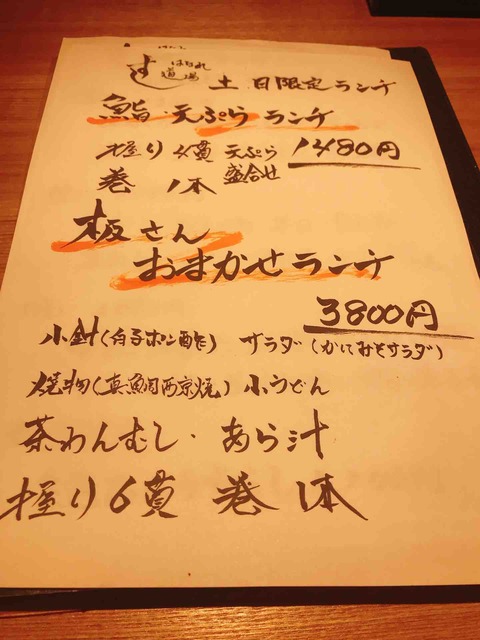 すし はなれ 道場 土日限定ランチ
鮨 天ぷらランチ
握り4貫 天ぷら盛合せ 1480円
巻 1本
板さん
おまかせランチ
3800円
小鉢(白子ポン酢) サラダ(かにみそサラダ)
焼物(真鯛西京焼) 小うどん
茶わんむし・あら汁
握り6貫 巻1本